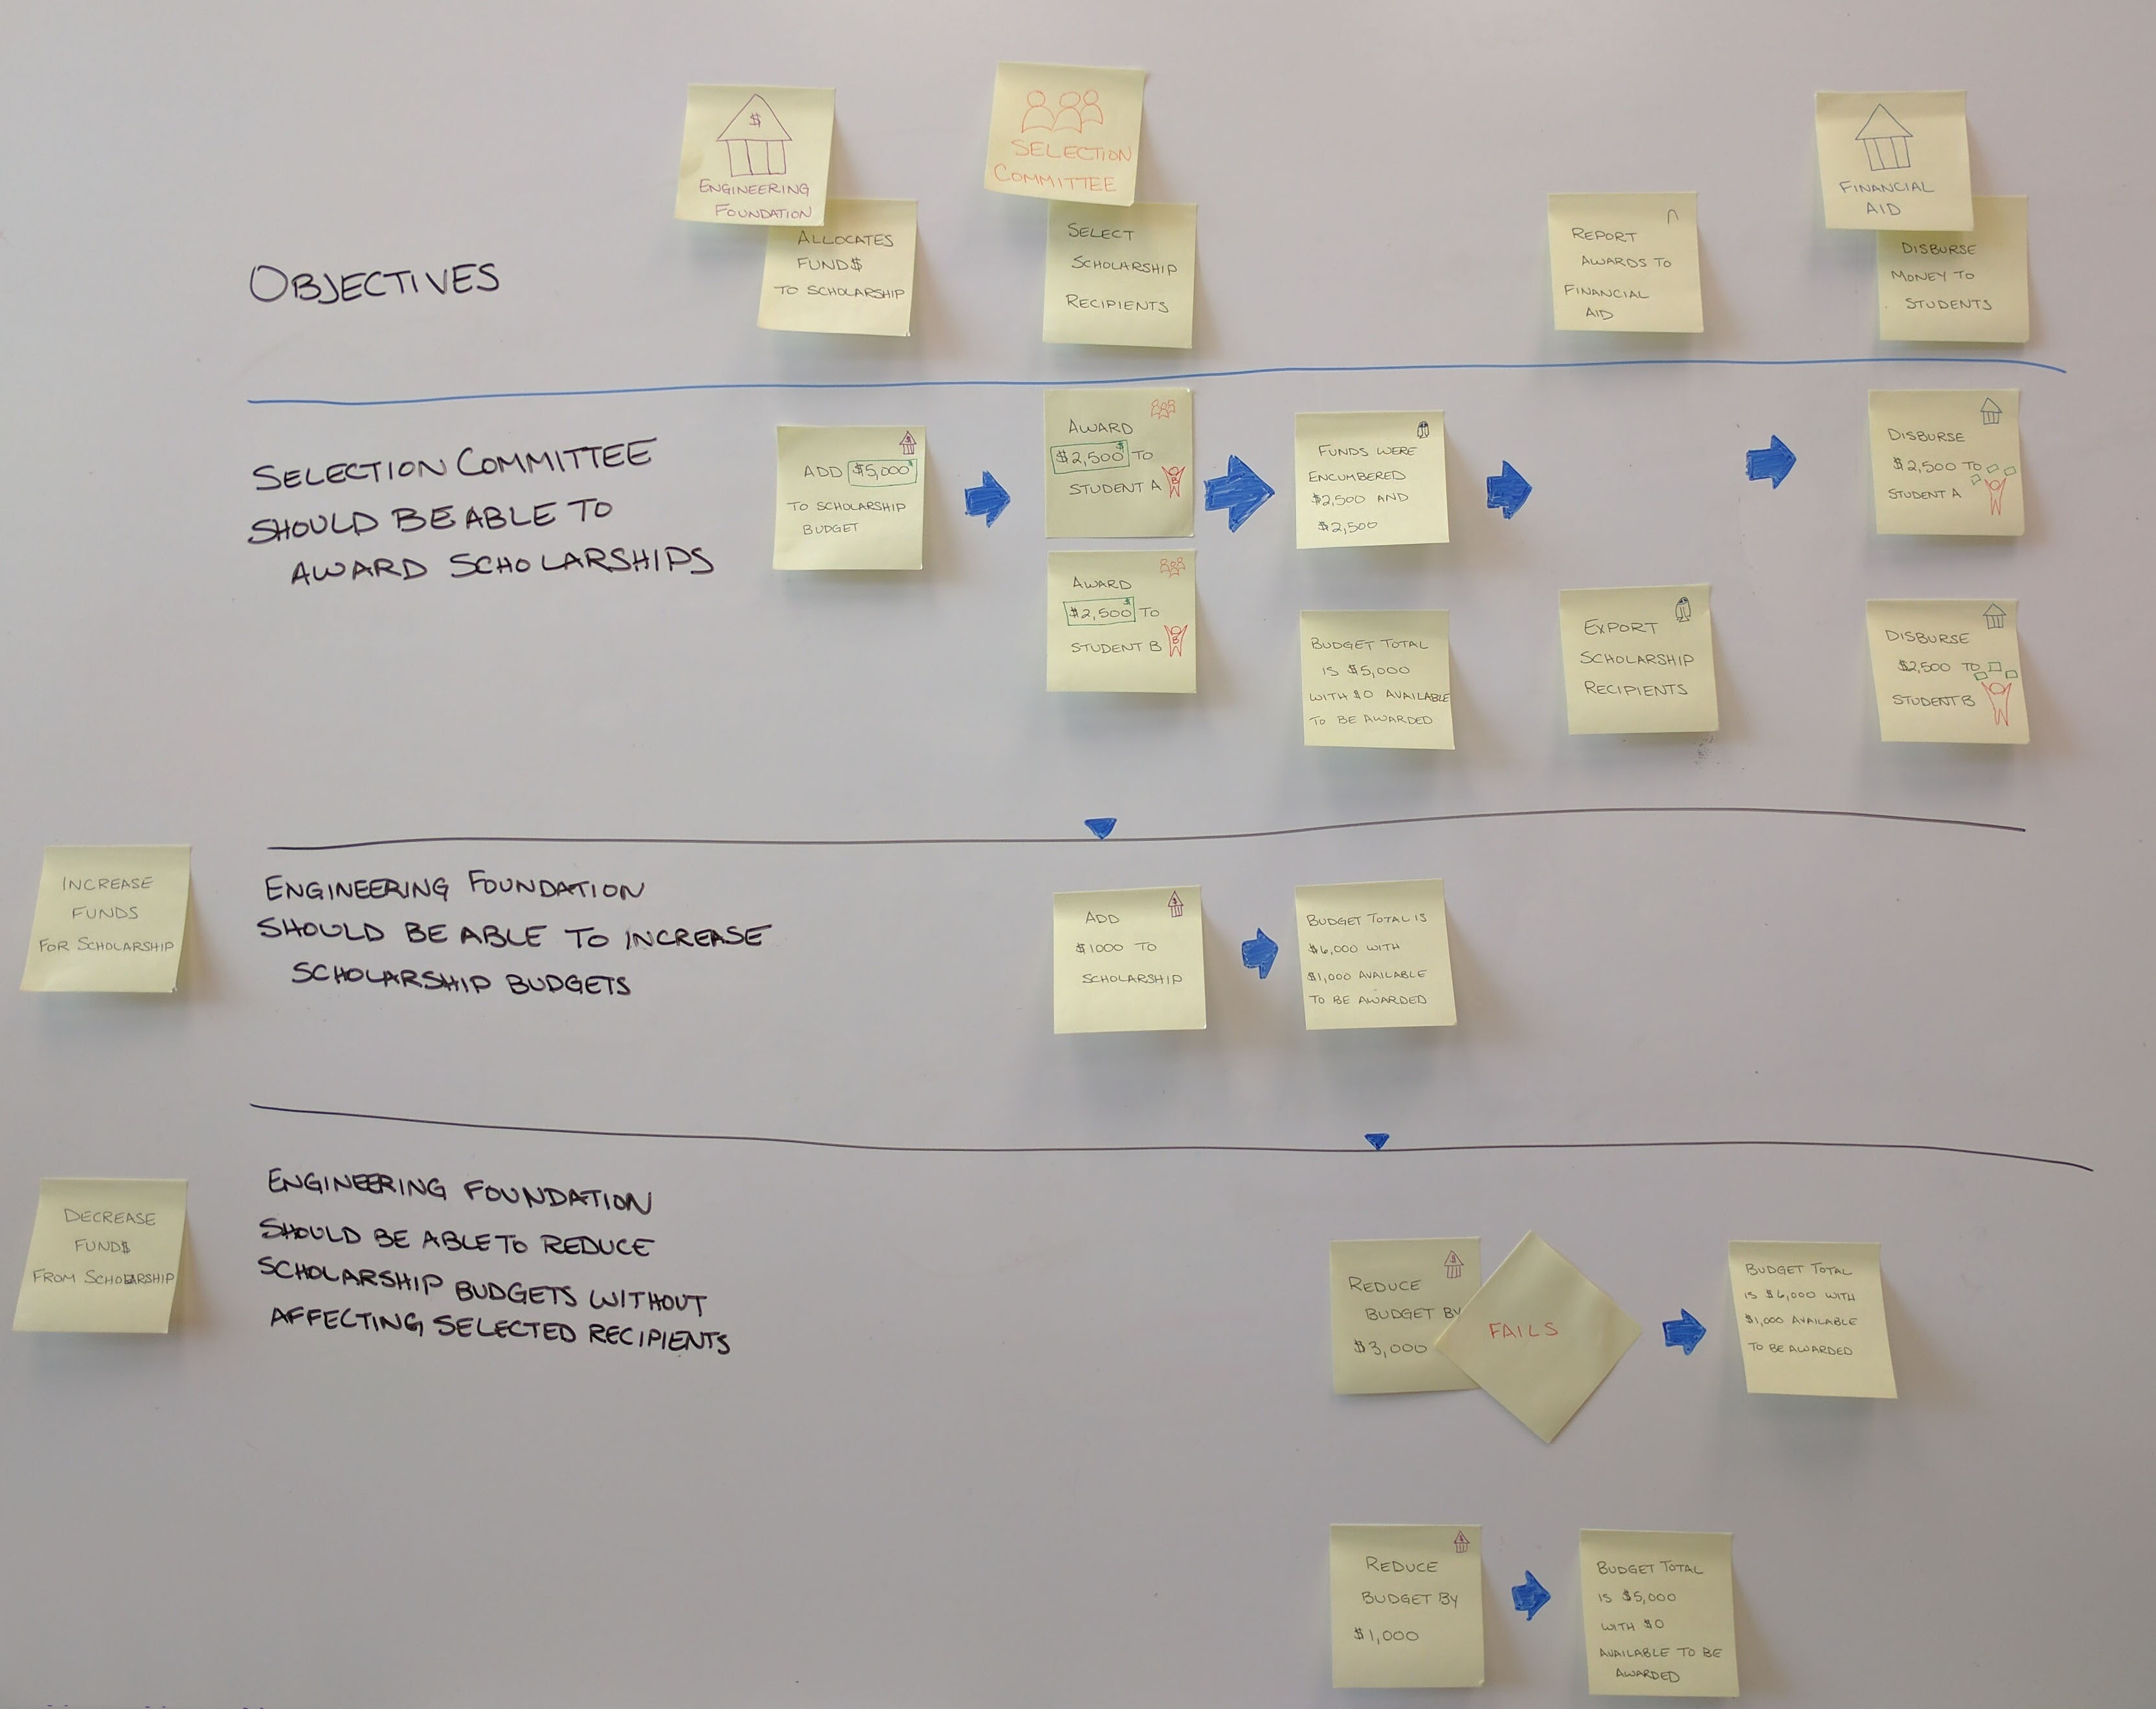 $
ENGINEERING
FOUNDATION
ALLOCATES
FUND$
TO SCHOLARSHIP
SELECTION
COMMITTEE
SELECT
SCHOLARSHIP
RECIPIENTS
REPORT
AWARDS TO
FINANCIAL
AID
FINANCIAL
AID
DISBURSE
MONEY TO
STUDENTS
OBJECTIVES
SELECTION COMMITTEE
SHOULD BE ABLE TO
AWARD SCHOLARSHIPS
$
ADD $5,000
TO SCHOLARSHIP
BUDGET
AWARD
$2,500 TO
STUDENT A
AWARD
$2,500 TO
STUDENT B
B
FUNDS WERE
ENCUMBERED
$2,500 AND
$2,500
BUDGET TOTAL
IS $5,000
WITH $0 AVAILABLE
TO BE AWARDED
EXPORT
SCHOLARSHIP
RECIPIENTS
DISBURSE
$2,500 TO
STUDENT A
DISBURSE
$2,500 TO
STUDENT B
INCREASE
FUNDS
FOR SCHOLARSHIP
ENGINEERING FOUNDATION
SHOULD BE ABLE TO INCREASE
SCHOLARSHIP BUDGETS
$
ADD
$1000 TO
SCHOLARSHIP
BUDGET TOTAL IS
$6,000 WITH
$1,000 AVAILABLE
TO BE AWARDED
DECREASE
FUND$
FROM SCHOLARSHIP
ENGINEERING FOUNDATION
SHOULD BE ABLE TO REDUCE
SCHOLARSHIP BUDGETS WITHOUT
AFFECTING SELECTED RECIPIENTS
$
REDUCE
BUDGET BY
$3,000
FAILS
BUDGET TOTAL
IS $6,000 WITH
$1,000 AVAILABLE
TO BE AWARDED
$
REDUCE
BUDGET BY
$1,000
BUDGET TOTAL
IS $5,000
WITH $0
AVAILABLE TO BE
AWARDED